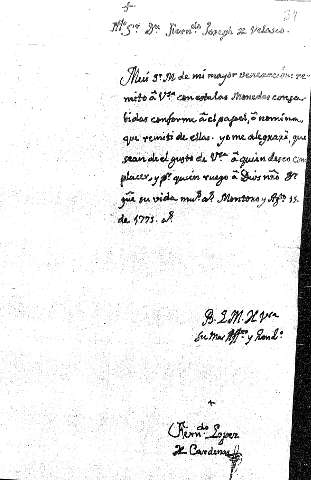 34
+
Sr. Dn. Ferndo. Joseph de Velasco.
Mui Sr. M de mi mayor veneracion: re-
mito â Vsa. con esta las Monedas conce-
bidas conforme â el papel, ô nomina,
que remiti de ellas. yo me alegrarè, que
sean de el gusto de Vsa. â quien deseo com
placer, y pr. quien ruego â Dios nrô Sr.
gue. su vida ms. as. Montoro y Agto. 11.
de 1773. as.
B. L. M. de Vsa.
su mas Affto. y Rendo.
+
Ferndo. Lopez
de Cardenas